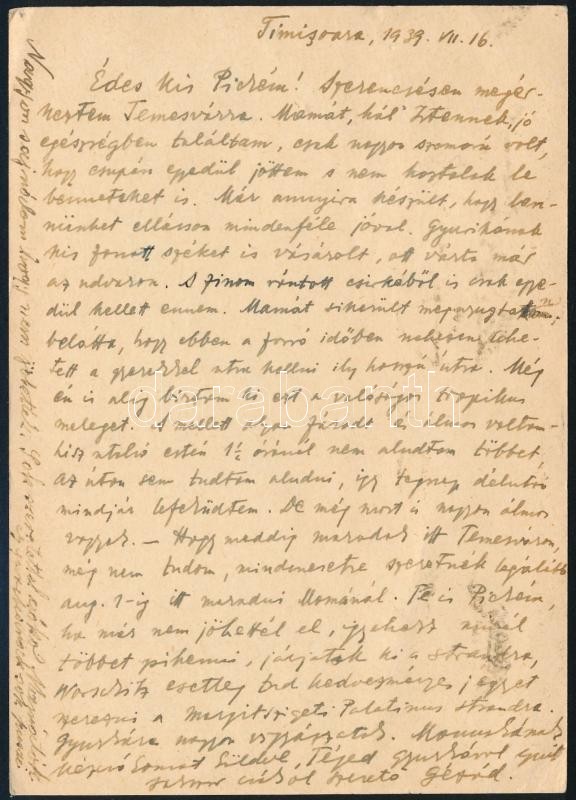 Timișoara, 1939. VII. 16.
Édes kis Picikém! Szerencsésen megér-
keztem Temesvárra. Mamát, hál' Istennek, jó
egészségben találtam, csak nagyon szomorú volt,
hogy csupán egyedül jöttem s nem hoztalak le
benneteket is. Már annyira készült, hogy ben-
nünket ellásson mindenféle jóval. Gyurikának
kis fonott széket is vásárolt, ott várta már
az udvaron. A finom rántott csirkéből is csak egye-
dül kellett ennem. Mamát sikerült megnyugtatnom;
belátta, hogy ebben a forró időben nehezen lehe-
tett a gyerekkel útra kelni ily hosszú útra. Még
én is alig bírtam ki ezt a valóságos tropikus
meleget. A mellett olyan fáradt és álmos voltam-
hisz utolsó estén 1½ óránál nem aludtam többet,
az úton sem tudtam aludni, így tegnap délután
mindjár lefeküdtem. De még most is nagyon álmos
vagyok. — Hogy meddig maradok itt Temesváron,
még nem tudom, mindenesetre szeretnék legalább
aug. 1-ig itt maradni Mamánál. Te is Picikém,
ha már nem jöhettél el, igyekezz minél
többet pihenni, járjatok ki a strandra,
esetleg tud kedvezményes jegyet
szerezni a Margitszigeti Palatinus strandra.
Gyurikára nagyon vigyázzatok.
Téged Gyurkával együtt
csókol szerető Gézád.
Nagyon sajnálom, hogy nem jöhettek.
darabanth